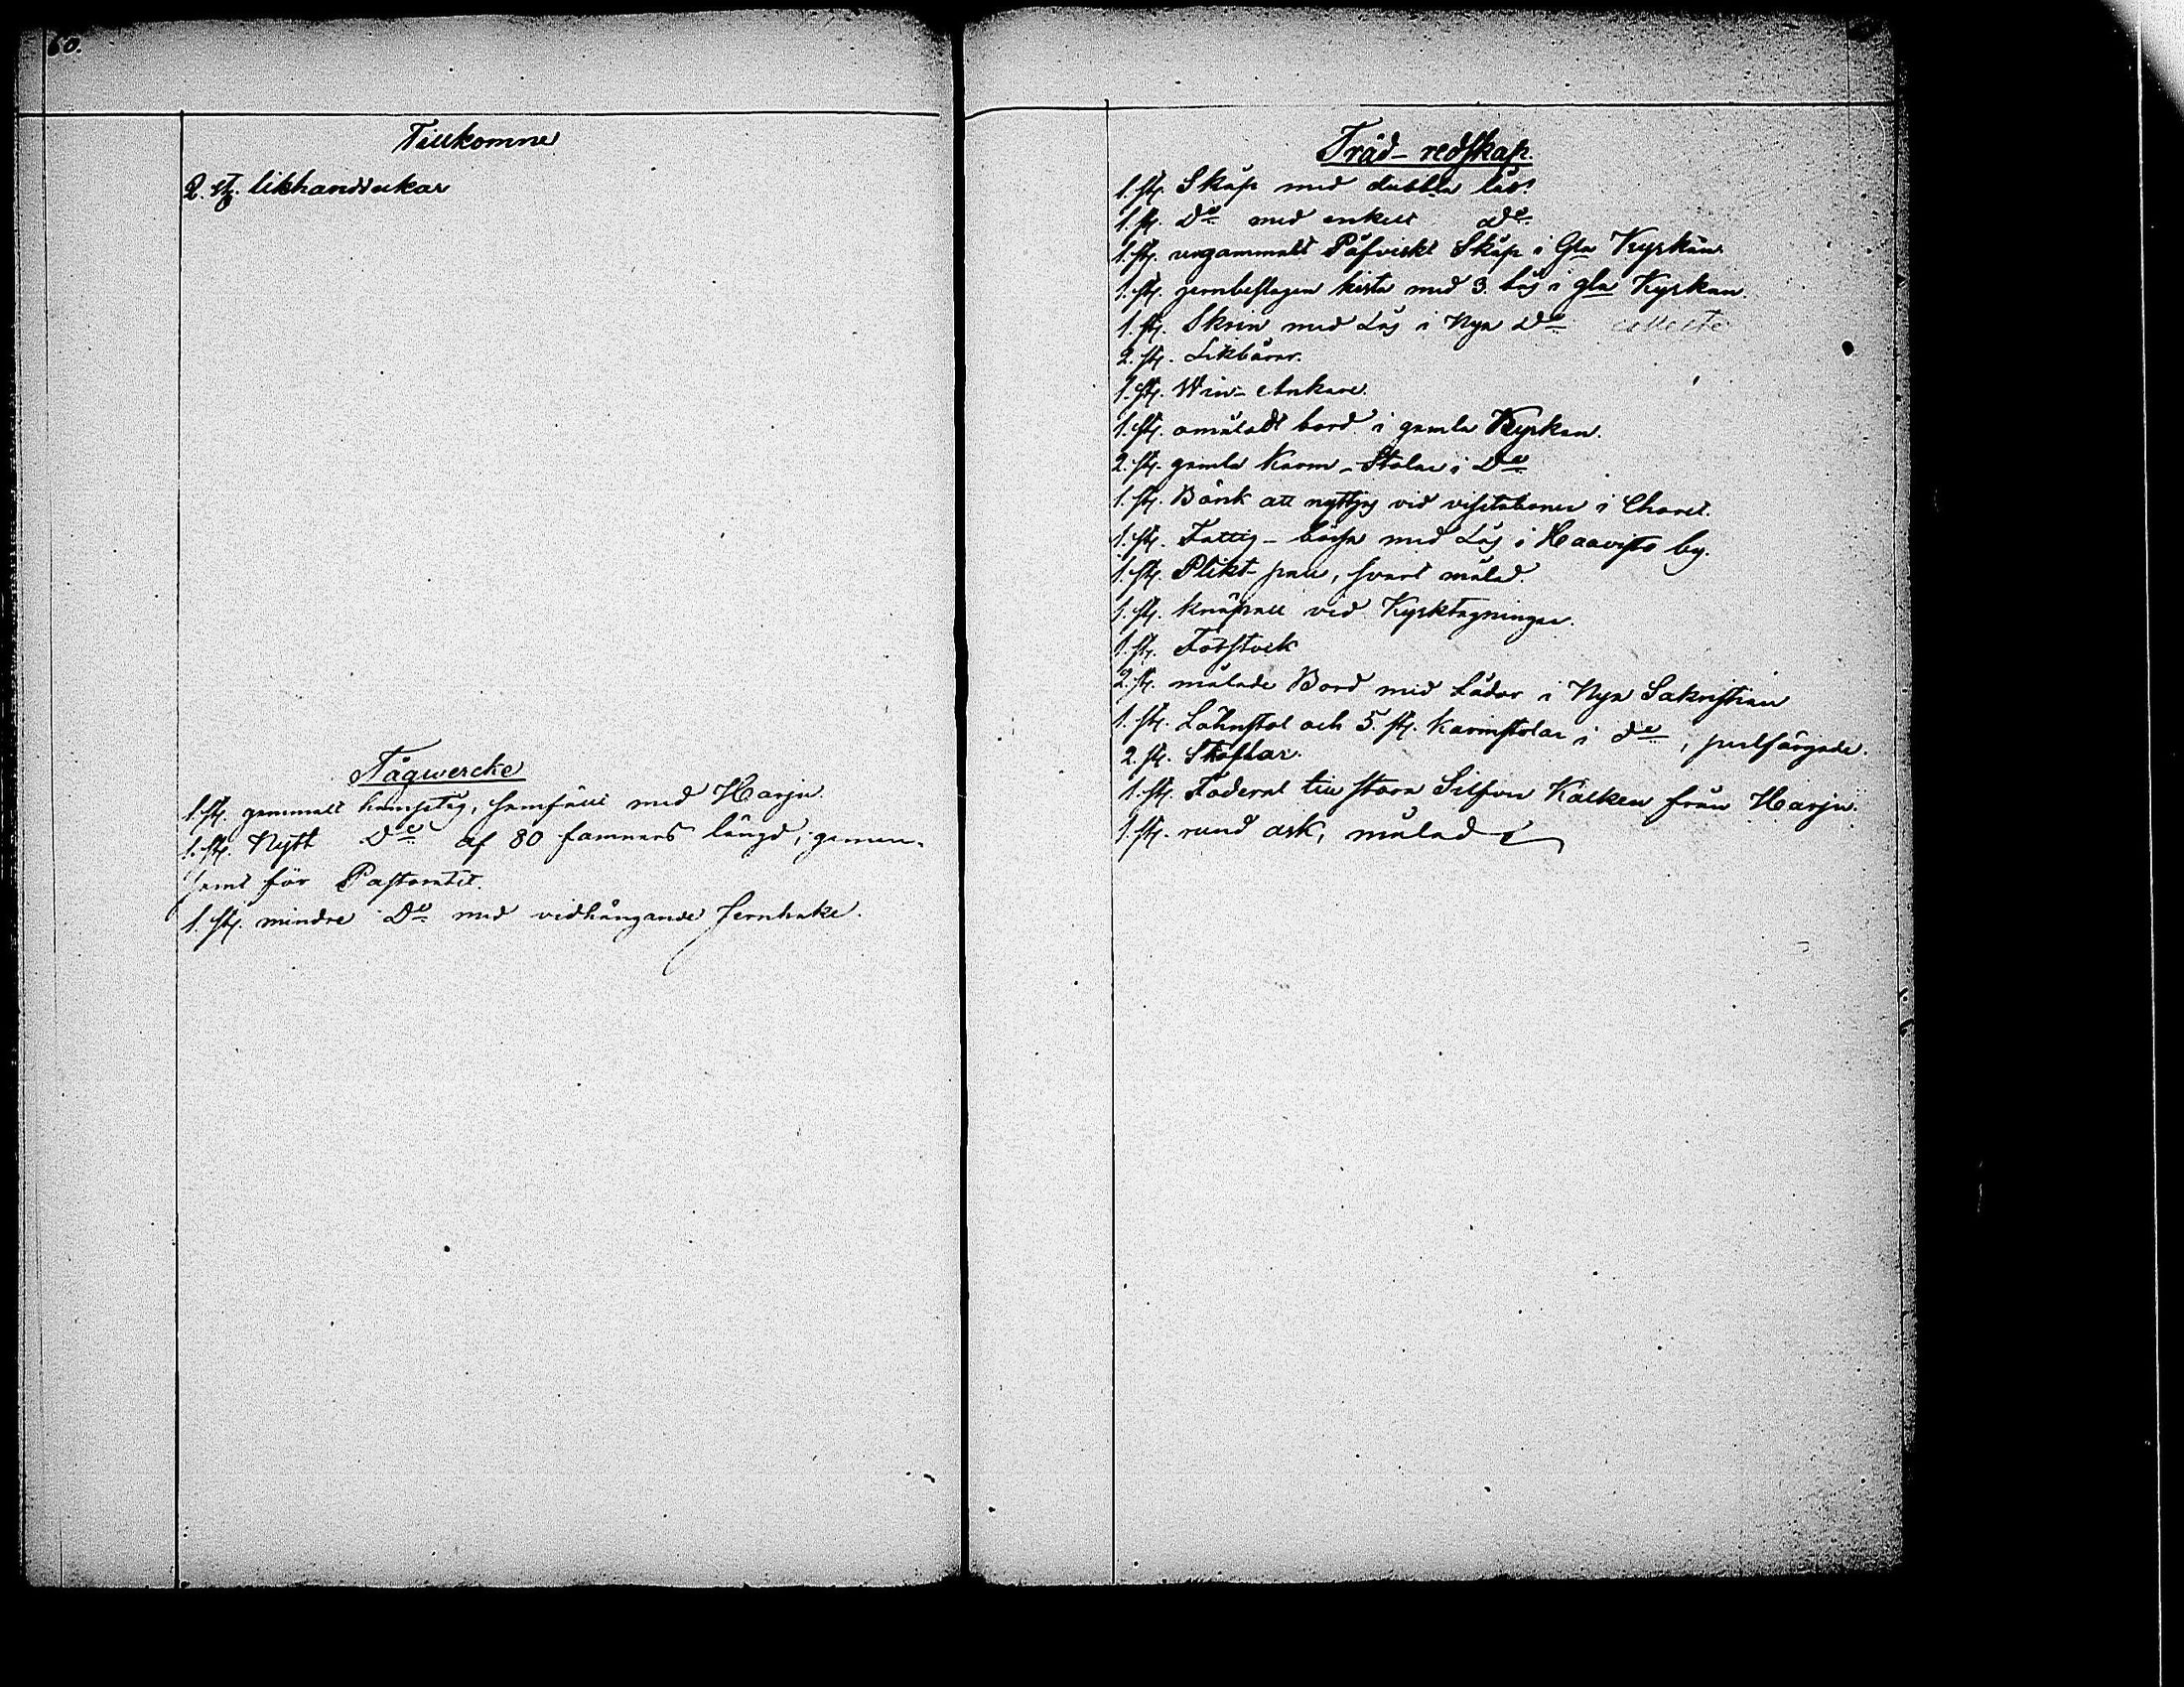 60.
Tillkomne
2. st. likhanddukar
Tågwercke
1. st. gammalt hamptåg, samfält med Harju
1. st. Nytt D:o af 80 famnars längd, gemen-
samt för Pastoratet.
1. st. mindre D:o med vidhängande Jernhake.
Träd-redskap.
1. st. Skåp med dubbla lås
1. st. D:o med enkelt D:o
1. st. urgammalt Påfviskt Skåp i Gla Kyrkan
1. st. jernbeslagen kista med 3. lås i gla Kyrkan.
1. st. Skrin med Lås i Nya D:o
2. st. Likbårar.
1. st. Win-Ankare.
1. st. omåladt bord i gamla Kyrkan.
2. st. gamla Karm-Stolar i D:o
1. st. Bänk att nyttjas vid visitationer i Choret.
1. st. Fattig-bössa med Lås i Haavisto by.
1. st. Plikt-pall, svart målad.
1. st. knäpall vid Kyrktagningar.
1. st. Fotstock
2. st. målade Bord med Lådor i Nya Sakristian
1. st. Länstol och 5. st. Karmstolar i d:o, perlfärgade.
2. st. Skoflar.
1. st. Foderal till stora Silfver Kalken från Harju.
1. st. rund ask, målad